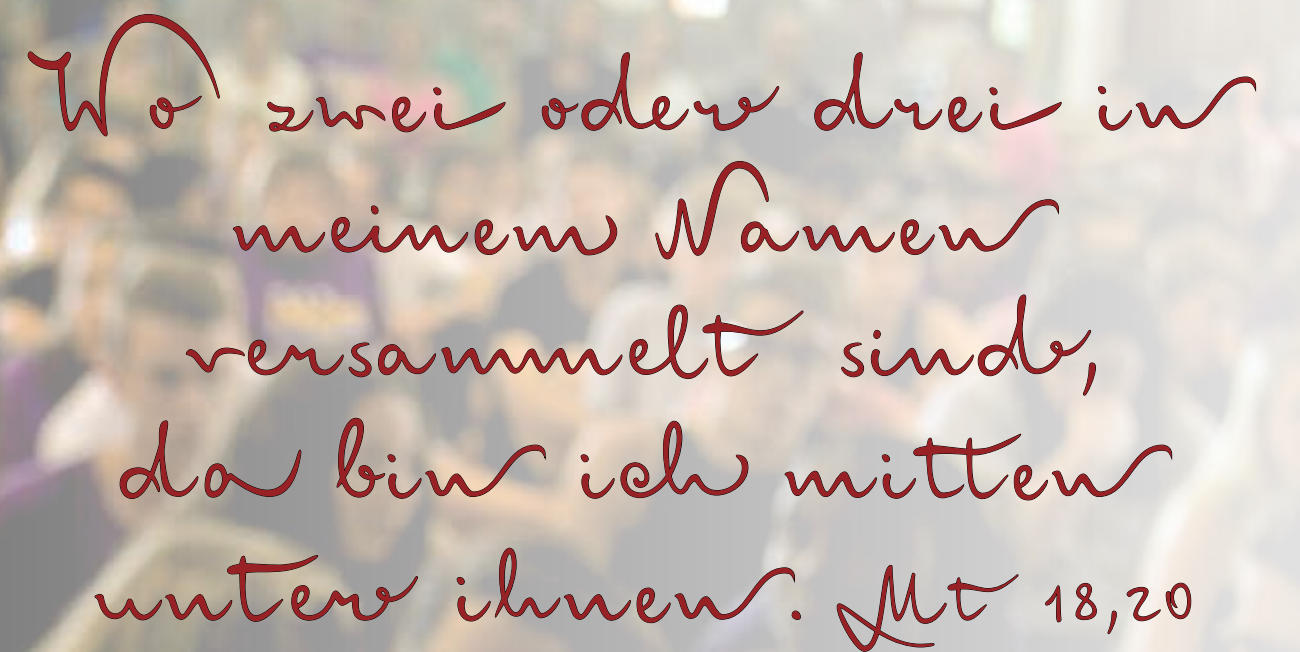 Wo zwei oder drei in
meinem Namen
versammelt sind,
da bin ich mitten
unter ihnen. Mt 18,20